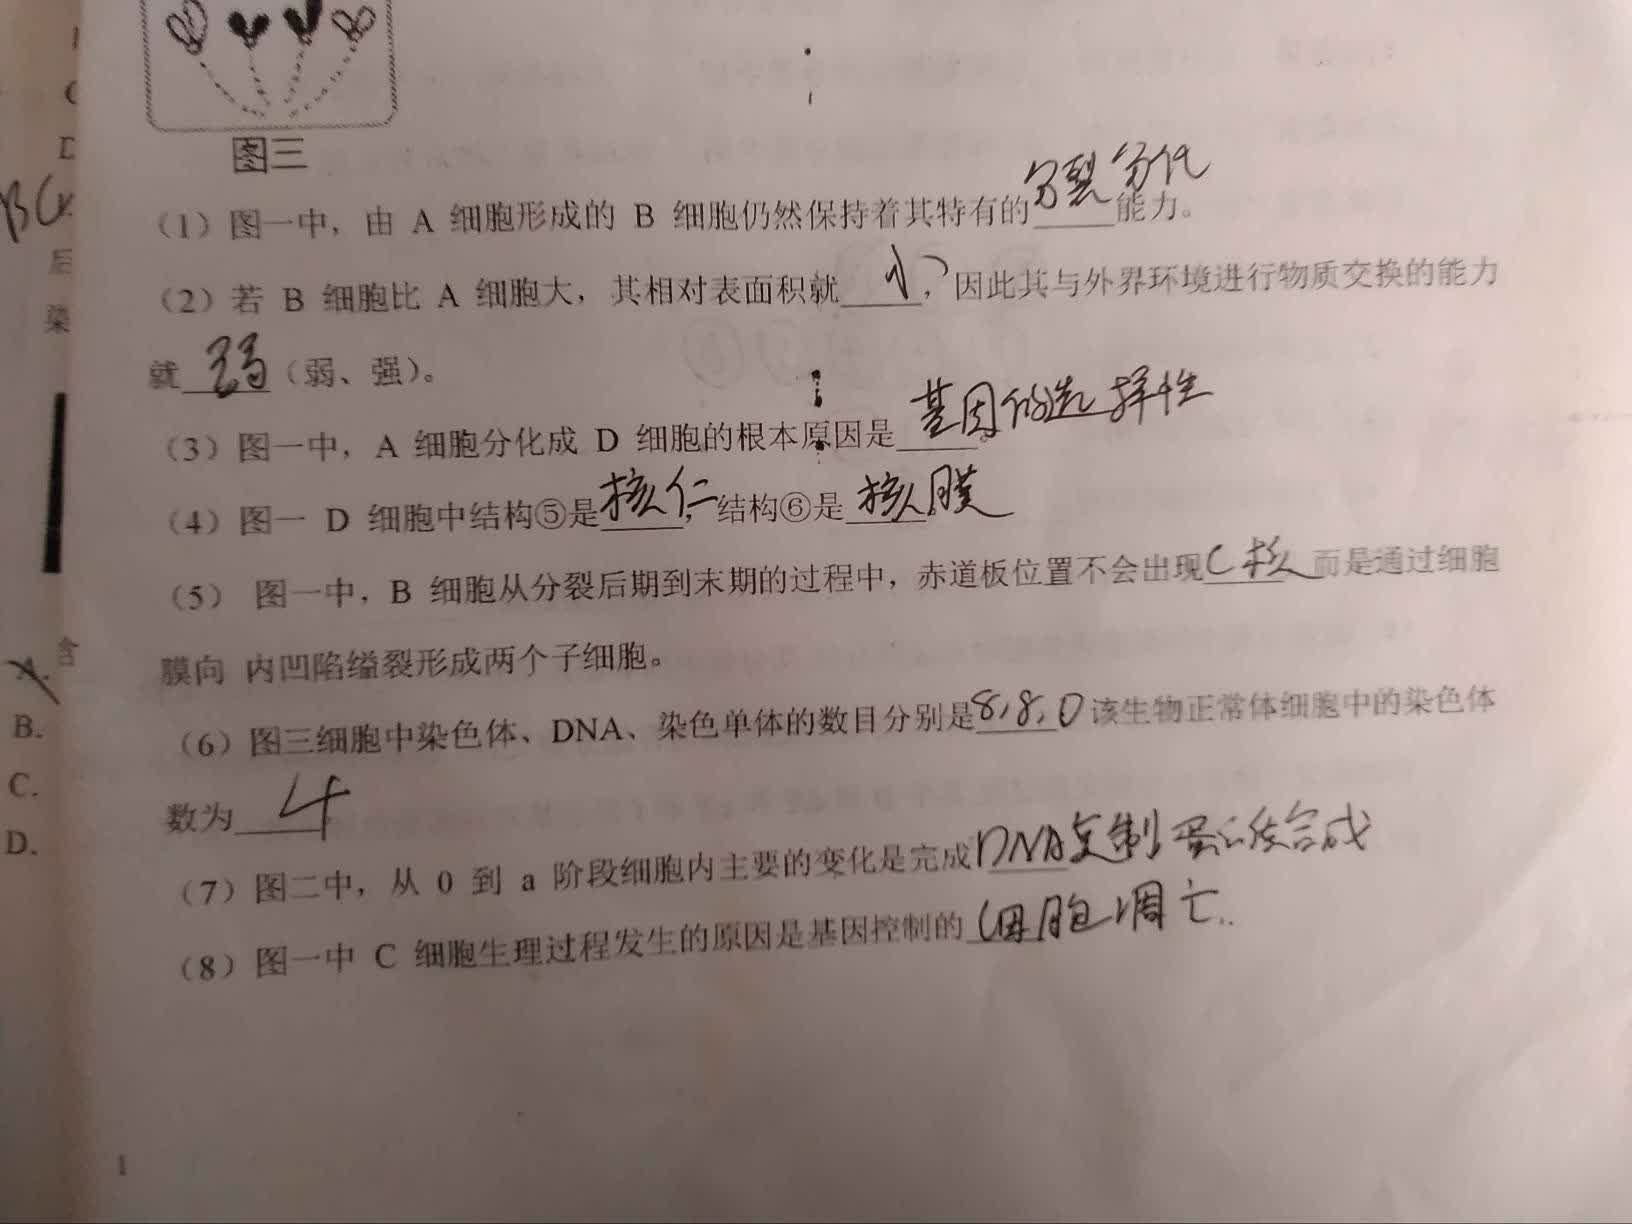 图三
（1）图一中，由 A 细胞形成的 B 细胞仍然保持着其特有的分裂分化能力。
（2）若 B 细胞比 A 细胞大，其相对表面积就小，因此其与外界环境进行物质交换的能力
就弱（弱、强）。
（3）图一中，A 细胞分化成 D 细胞的根本原因是基因的选择性
（4）图一 D 细胞中结构⑤是核仁，结构⑥是核膜
（5） 图一中，B 细胞从分裂后期到末期的过程中，赤道板位置不会出现C核而是通过细胞
膜向 内凹陷缢裂形成两个子细胞。
（6）图三细胞中染色体、DNA、染色单体的数目分别是8,8,0该生物正常体细胞中的染色体
数为4
（7）图二中，从 0 到 a 阶段细胞内主要的变化是完成DNA复制蛋白质合成
（8）图一中 C 细胞生理过程发生的原因是基因控制的细胞凋亡..
D
后
染
含
A.
B.
C.
D.
1